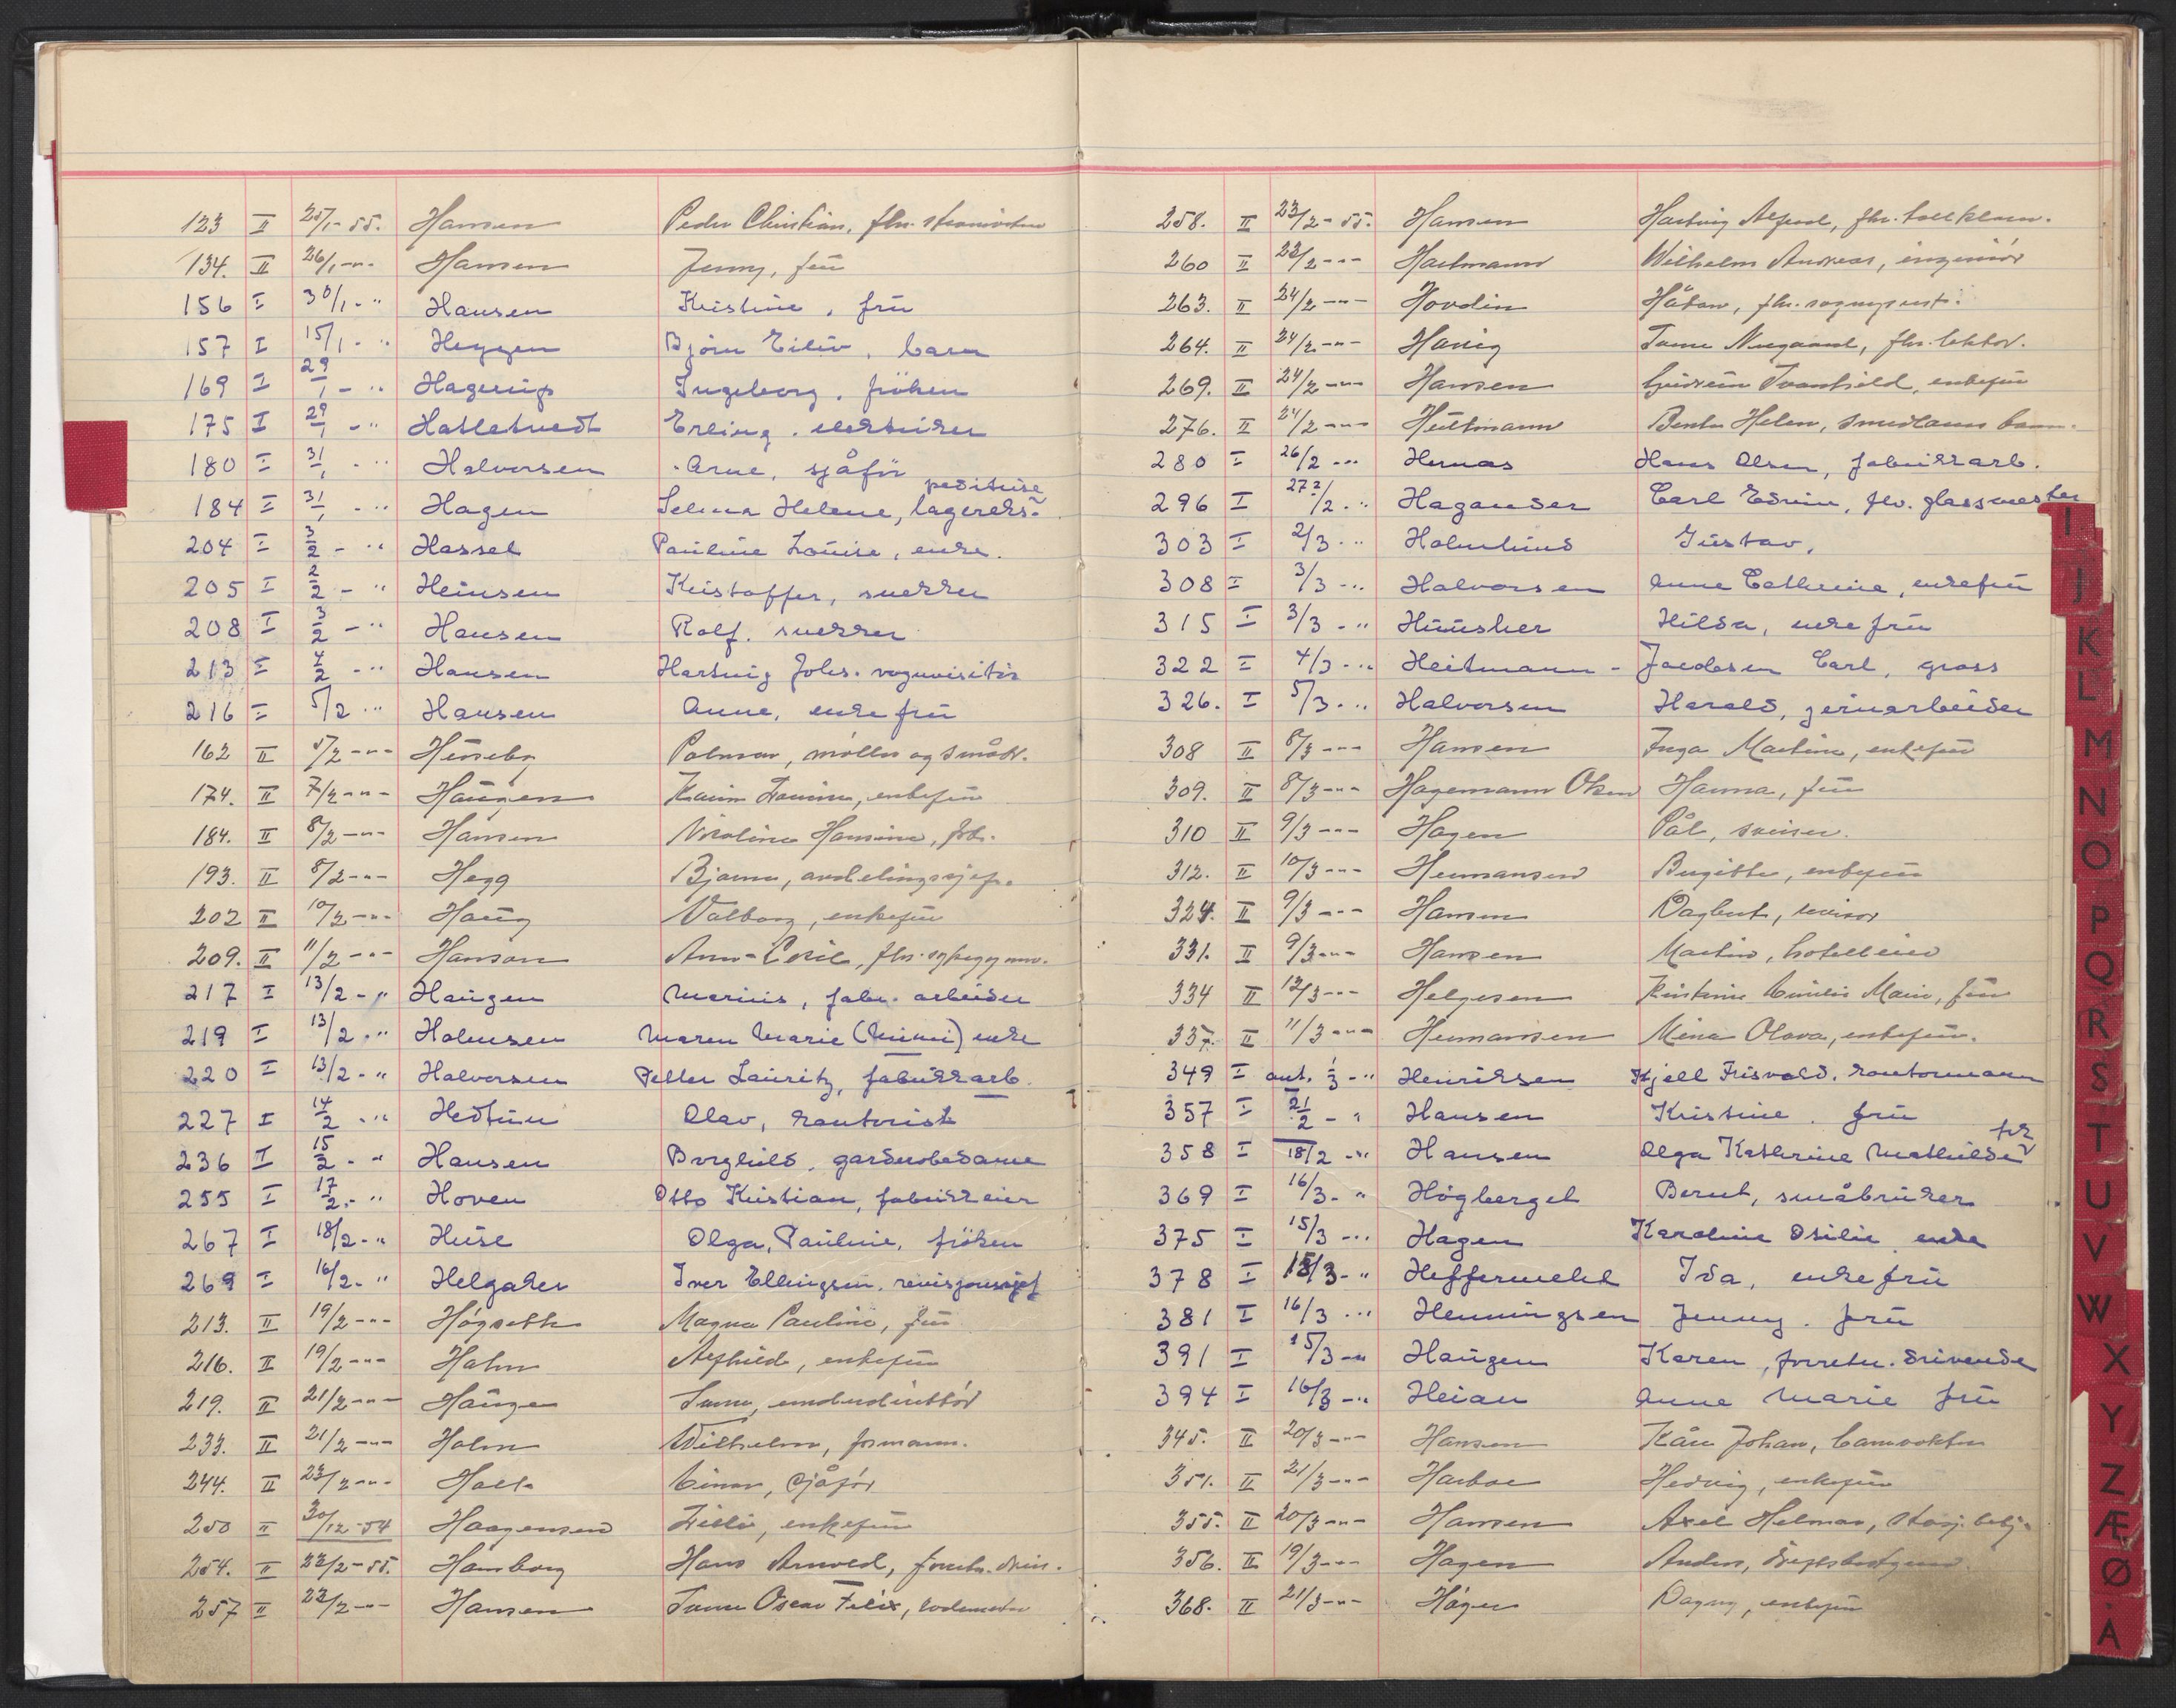 123 II 25/1-55. Hansen Peder Christian, fhv.
134. II 26/1-"- Hansen Jenny, frü
156 I 30/1-" Hansen Kristine, frü
157 I 15/1-" Heggen Björn Eiliv, barn
169 I 29/1-" Hagerup Ingeborg, fröken
175 I 29/1-" Hatletvedt Erling
180 I 31/1-" Halvorsen Arne, sjåför
184 I 31/1-" Hagen Selma Helene, lagereks-peditrise
204 I 3/2-" Hassel Pauline Louise, enke.
205 I 2/2-" Heinsen Kristoffer, snekker
208 I 3/2-" Hansen Rolf. snekker
213 I 4/2-" Hansen Hartvig Johs. vognvisitör
216 I 5/2-" Hansen Anne, enkefrü
162 II 5/2-"- Palmar, möller og småbr.
174. II 7/2-"- Haugen Karin, enkefrü
184. II 8/2-"- Hansen Nicoline Hansine, frk.
193. II 8/2-"- Hegg Bjarne, avdelingssjef.
202 II 10/2-"- Haug Valborg, enkefrü
209. II 11/2-"- Hanson Ann-Cecil, fhv. sykegymn.
217 I 13/2-" Haugen Marius, fabr. arbeider
219 I 13/2-" Holmsen Maren Marie (Mimi) enke
220 I 13/2-" Halvorsen Petter Lauritz, fabrikkarb.
227 I 14/2-" Hedtun Olav, kontorist
236 I 15/2-" Hansen Borghild, garderobedame
255 I 17/2-" Hoven Otto Kristian, fabrikkeier
267 I 18/2-" Huse Olga, Pauline, fröken
269 I 16/2-" Helgaker Iver Ellingsen, revisjonssjef
213. II 19/2-"- Högseth Magna Pauline, frü
216. II 19/2-"- Holm Alfhild, enkefrü
219. II 21/2-"- Hauge
233. II 21/2-"- Holm Wilhelm, formann.
244. II 23/2-"- Holt Einar, sjåför
250 II 30/12-54 Haagensen Lilli, enkefrü
254. II 22/2-55. Hamborg Hans Arnold, forretn. driv.
257 II 22/2-"- Hansen Oscar Felix
258. II 23/2-55. Hansen Hartvig Alfred, fhv.
260 II 23/2-"- Hartmann Wilhelm Andreas, ingeniör
263. II 24/2-"- Hovdin Håkon, fhv.
264. II 24/2-"- Nergaard, fhv. lektor.
269. II 24/2-"- Hansen Tvanhild, enkefrü
276. II 24/2-"- Hultmann Bente Helen, barn.
280 I 26/2-" Hernas Hans Olsen, fabrikkarb.
296 I 27/2-" Hagander Carl Edvin, fhv. glassmester
303 I 2/3-" Holmlund Gustav,
308 I 3/3-" Halvorsen Anne Cathrine, enkefrü
315 I 3/3-" Hilda, enkefrü
322 I 4/3-" Heitmann - Jacobsen Carl, gross
326. I 5/3-" Halvorsen Harald, jernarbeider
308 II 8/3-"- Hansen Inga Martine, enkefrü
309. II 8/3-"- Hagemann Olsen Hanna, frü
310 II 9/3-"- Hagen Pål, sveiser.
312. II 10/3-"- Hermansen Birgitte, enkefrü
324. II 9/3-"- Hansen Dagbert, revisor
331. II 9/3-"- Hansen Martin, hotelleier
334 II 12/3-"- Helgesen Kristine Emilie Marie, frü
337. II 11/3-"- Hermansen Mina Olava, enkefrü.
349 I ant. 1/3-" Henriksen Kjell Frisvold, kontormann
357 I 21/2-" Hansen Kristine. frü
358 I 18/2-" Hansen Olga Kathrine Mathilde frk
369 I 16/3-" Högberget Bernt, småbruker
375 I 15/3-" Hagen Karoline Otilie enke
378 I 15/3-" Heffermehl Ida, enkefrü
381 I 16/3-" Henningsen Jenny. frü
391 I 15/3-" Haugen Karen, forretn. drivende
394 I 16/3-" Heian Anne Marie frü
345. II 20/3-"- Hansen Kåre Johan
351. II 21/3-"- Harboe Hedvig, enkefrü
355. II 20/3-"- Hansen Axel Helmar
356. II 19/3-"- Hagen Anders
368. II 21/3-"- Dagny, enkefrü
I
J
K
L
M
N
O
P
Q
R
S
T
U
V
W
X
Y
Z
Æ
Ø
Å